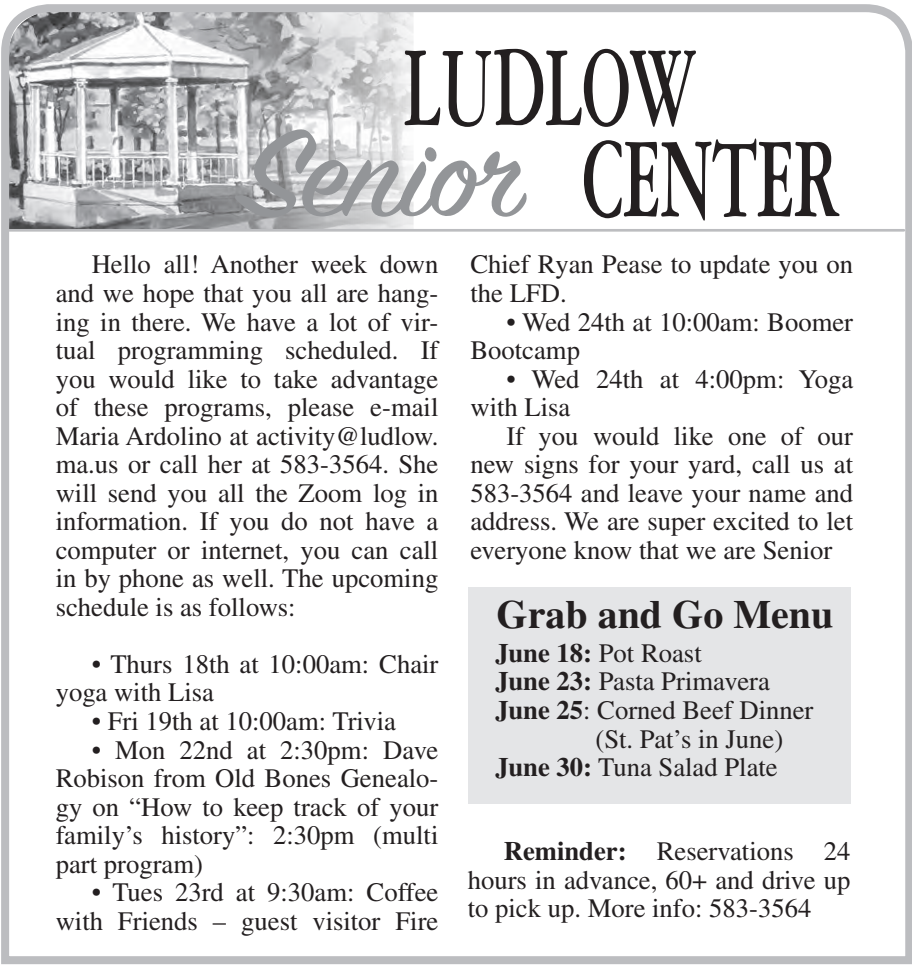 LUDLOW
Senior CENTER
Hello all! Another week down
and we hope that you all are hang-
ing in there. We have a lot of vir-
tual programming scheduled. If
you would like to take advantage
of these programs, please e-mail
Maria Ardolino at activity@ludlow.
ma.us or call her at 583-3564. She
will send you all the Zoom log in
information. If you do not have a
computer or internet, you can call
in by phone as well. The upcoming
schedule is as follows:
• Thurs 18th at 10:00am: Chair
yoga with Lisa
• Fri 19th at 10:00am: Trivia
• Mon 22nd at 2:30pm: Dave
Robison from Old Bones Genealo-
gy on “How to keep track of your
family’s history”: 2:30pm (multi
part program)
• Tues 23rd at 9:30am: Coffee
with Friends – guest visitor Fire
Chief Ryan Pease to update you on
the LFD.
• Wed 24th at 10:00am: Boomer
Bootcamp
• Wed 24th at 4:00pm: Yoga
with Lisa
If you would like one of our
new signs for your yard, call us at
583-3564 and leave your name and
address. We are super excited to let
everyone know that we are Senior
Grab and Go Menu
June 18: Pot Roast
June 23: Pasta Primavera
June 25: Corned Beef Dinner
(St. Pat’s in June)
June 30: Tuna Salad Plate
Reminder: Reservations 24
hours in advance, 60+ and drive up
to pick up. More info: 583-3564